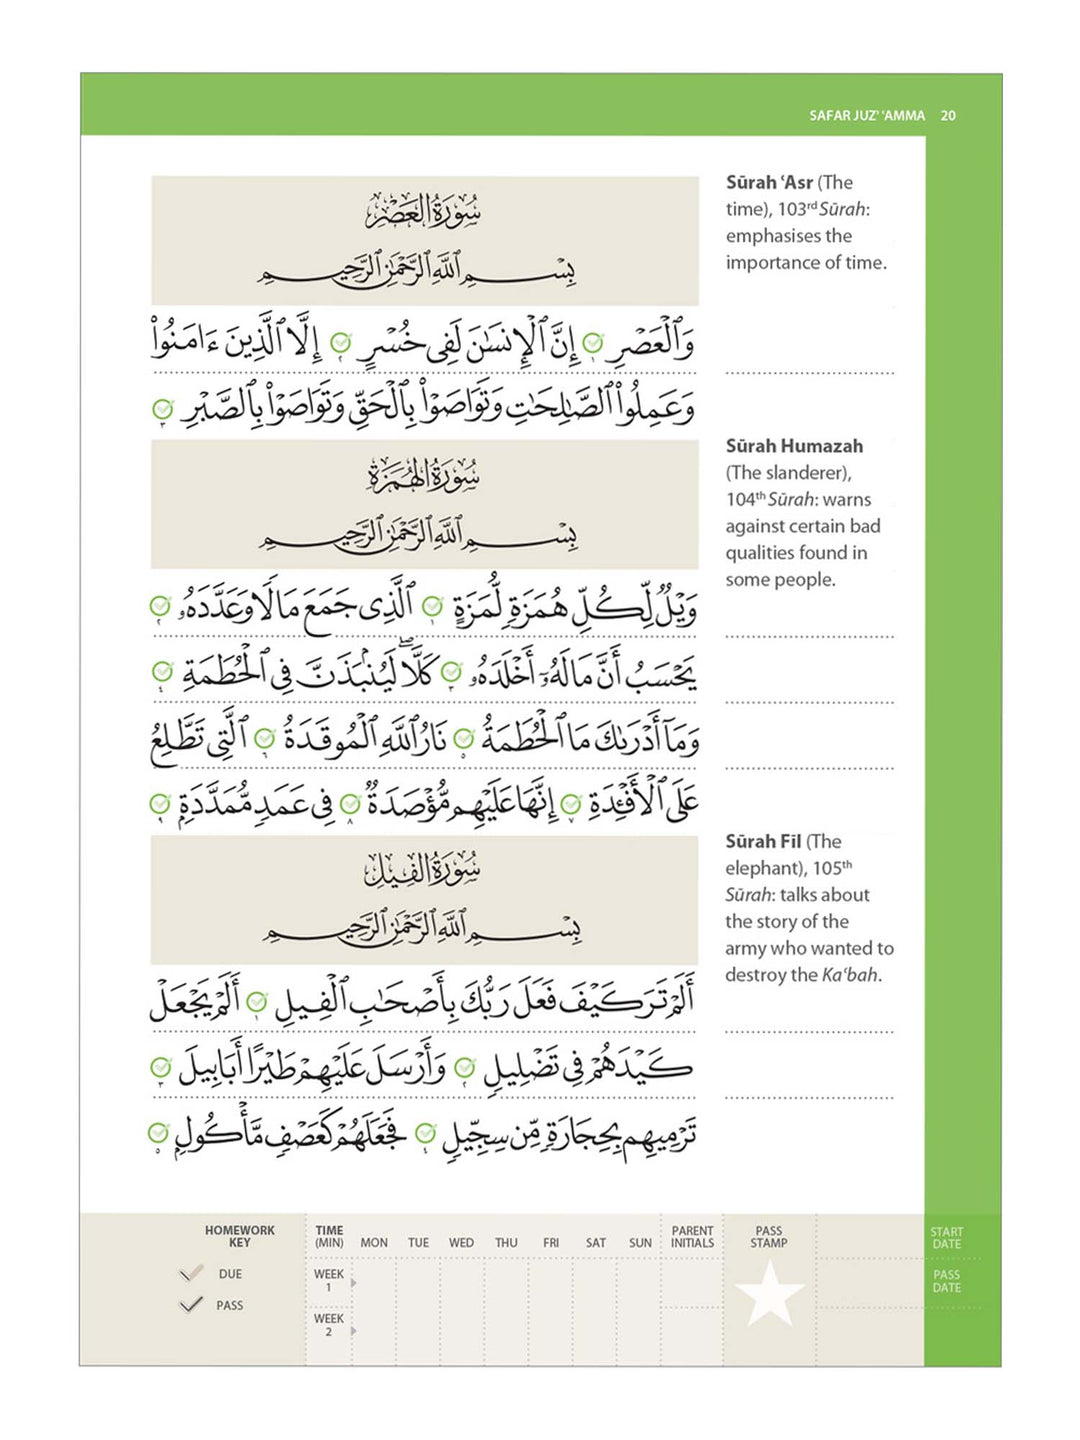 SAFAR JUZ’ ‘AMMA 20
سُورَةُ العَصْرِ
بِسْمِ ٱللَّهِ ٱلرَّحْمَٰنِ ٱلرَّحِيمِ
وَٱلْعَصْرِ ١ إِنَّ ٱلْإِنسَٰنَ لَفِى خُسْرٍ ٢ إِلَّا ٱلَّذِينَ ءَامَنُوا۟
وَعَمِلُوا۟ ٱلصَّٰلِحَٰتِ وَتَوَاصَوْا۟ بِٱلْحَقِّ وَتَوَاصَوْا۟ بِٱلصَّبْرِ ٣
Sūrah ‘Asr (The
time), 103rd Sūrah:
emphasises the
importance of time.
سُورَةُ الهُمَزَةِ
بِسْمِ ٱللَّهِ ٱلرَّحْمَٰنِ ٱلرَّحِيمِ
وَيْلٌ لِّكُلِّ هُمَزَةٍ لُّمَزَةٍ ١ ٱلَّذِى جَمَعَ مَالًا وَعَدَّدَهُۥ ٢
يَحْسَبُ أَنَّ مَالَهُۥٓ أَخْلَدَهُۥ ٣ كَلَّا ۖ لَيُنۢبَذَنَّ فِى ٱلْحُطَمَةِ ٤
وَمَآ أَدْرَىٰكَ مَا ٱلْحُطَمَةُ ٥ نَارُ ٱللَّهِ ٱلْمُوقَدَةُ ٦ ٱلَّتِى تَطَّلِعُ
عَلَى ٱلْأَفْـِٔدَةِ ٧ إِنَّهَا عَلَيْهِم مُّؤْصَدَةٌ ٨ فِى عَمَدٍ مُّمَدَّدَةٍۭ ٩
Sūrah Humazah
(The slanderer),
104th Sūrah: warns
against certain bad
qualities found in
some people.
سُورَةُ الفِيلِ
بِسْمِ ٱللَّهِ ٱلرَّحْمَٰنِ ٱلرَّحِيمِ
أَلَمْ تَرَ كَيْفَ فَعَلَ رَبُّكَ بِأَصْحَٰبِ ٱلْفِيلِ ١ أَلَمْ يَجْعَلْ
كَيْدَهُمْ فِى تَضْلِيلٍ ٢ وَأَرْسَلَ عَلَيْهِمْ طَيْرًا أَبَابِيلَ ٣
تَرْمِيهِم بِحِجَارَةٍ مِّن سِجِّيلٍ ٤ فَجَعَلَهُمْ كَعَصْفٍ مَّأْكُولٍۭ ٥
Sūrah Fīl (The
elephant), 105th
Sūrah: talks about
the story of the
army who wanted to
destroy the Ka‘bah.
HOMEWORK
KEY
DUE
PASS
TIME
(MIN) MON TUE WED THU FRI SAT SUN
WEEK
1
WEEK
2
PARENT
INITIALS
PASS
STAMP
START
DATE
PASS
DATE